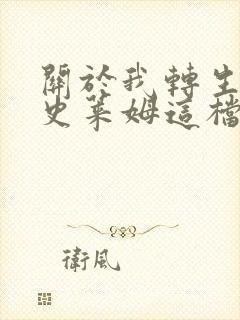 關於我轉生
史萊姆這檔
衛風